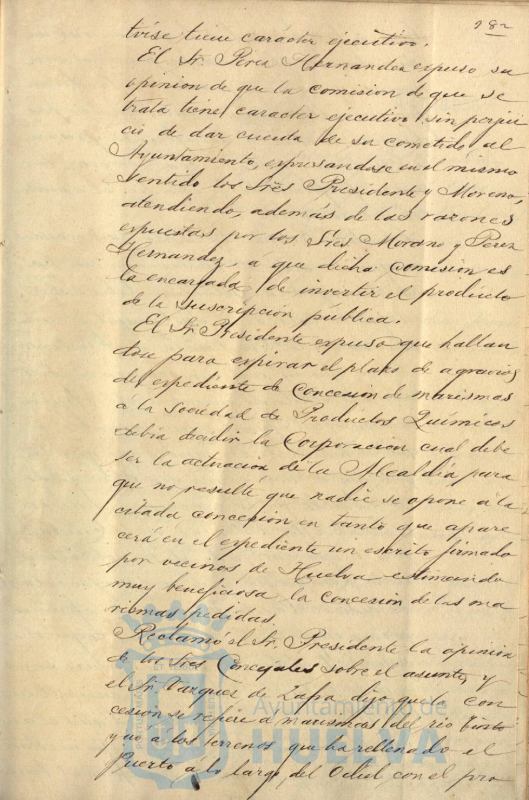 282
tvise tiene carácter ejecutivo.
El Sr. Perez Hernandez expuso su
opinion de que la comision de que se
trata tiene caracter ejecutivo sin perjui
cio de dar cuenta de su cometido al
Ayuntamiento, expresandose en el mismo
sentido los Sres Presidente y Moreno,
atendiendo, además de las razones
expuestas por los Sres Morano y Perez
Hernandez, a que dicha comision es
la encargada de invertir el producto
de la suscripcion publica.
El Sr. Presidente expuso que hallan
dose para expirar el plazo de agravios
del expediente de Concesion de marismas
á la Sociedad de Productos Químicos
debia decidir la Corporacion cual debe
ser la actuacion de la Alcaldía para
que no resulte que nadie se opone á la
citada concesion en tanto que apare
cerá en el expediente un escrito firmado
por vecinos de Huelva estimando
muy beneficiosa la concesion de las ma
rismas pedidas.
Reclamó el Sr. Presidente la opinion
de los Sres Concejales sobre el asunto, y
el Sr. Vazquez de Zafra dijo que la con
cesion se refiere á marismas del rio Tinto
y nó á los terrenos que ha rellenado el
Puerto á lo largo del Odiel, con el pro
Ayuntamiento de
HUELVA